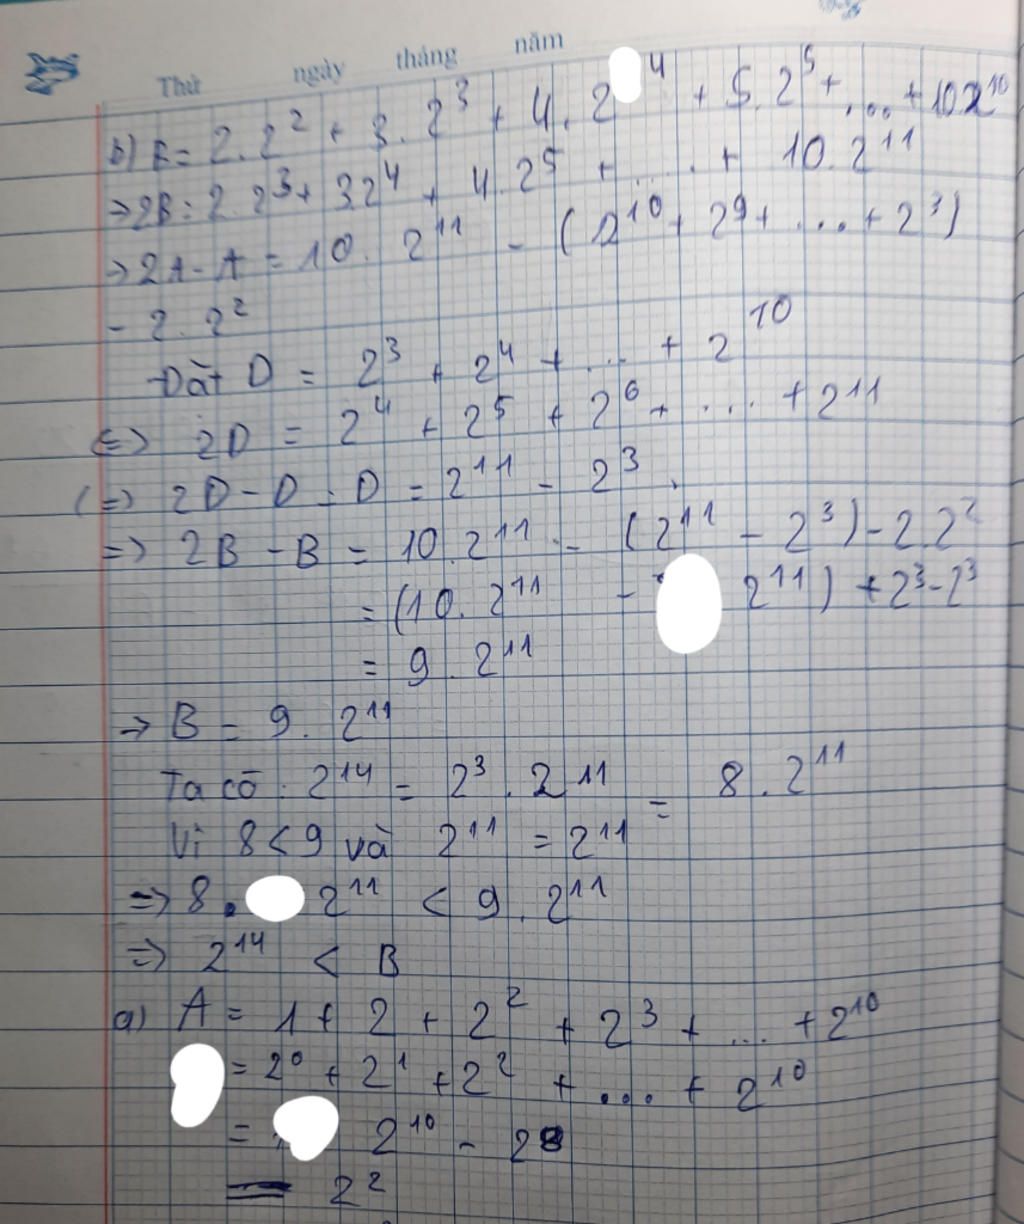 Thứ ngày tháng năm
b) B = 2.2² + 3.2³ + 4.2⁴ + 5.2⁵ + ... + 10.2¹⁰
=> 2B = 2.2³ + 3.2⁴ + 4.2⁵ + ... + 10.2¹¹
=> 2A - A = 10.2¹¹ - (2¹⁰ + 2⁹ + ... + 2³)
- 2.2²
Đặt D = 2³ + 2⁴ + ... + 2¹⁰
(=) 2D = 2⁴ + 2⁵ + 2⁶ + ... + 2¹¹
(=) 2D - D = D = 2¹¹ - 2³.
=> 2B - B = 10.2¹¹ - (2¹¹ - 2³) - 2.2²
= (10.2¹¹ - 2¹¹) + 2³ - 2³
= 9.2¹¹
-> B = 9.2¹¹
Ta có: 2¹⁴ = 2³.2¹¹ = 8.2¹¹
Vì 8 < 9 và 2¹¹ = 2¹¹
=> 8.2¹¹ < 9.2¹¹
=> 2¹⁴ < B
a) A = 1 + 2 + 2² + 2³ + ... + 2¹⁰
= 2⁰ + 2¹ + 2² + ... + 2¹⁰
= 2¹⁰ -
= 2²